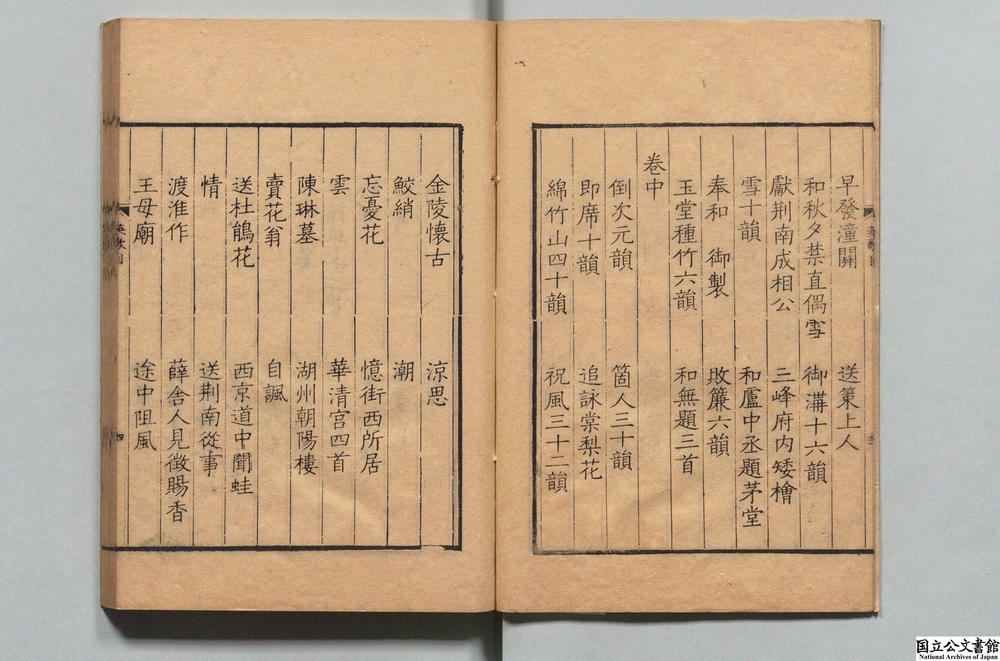 早發潼關　送策上人
和秋夕禁直偶雪　御溝十六韻
獻荆南成相公　三峰府内矮檜
雪十韻　和盧中丞題茅堂
奉和　御製　敗簾六韻
玉堂種竹六韻　和無題三首
卷中
倒次元韻　箇人三十韻
即席十韻　追詠棠梨花
綿竹山四十韻　祝風三十二韻
金陵懷古　涼思
鮫綃　潮
忘憂花　憶街西所居
雲　華清宫四首
陳琳墓　湖州朝陽樓
賣花翁　自諷
送杜鵑花　西京道中聞蛙
情　送荆南從事
渡淮作　薛舍人見徵賜香
王母廟　途中阻風
四
国立公文書館
National Archives of Japan